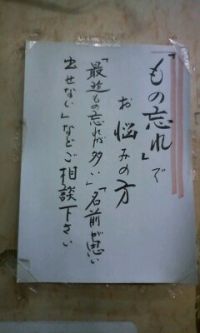 「もの忘れ」で
お悩みの方
「最近もの忘れが多い」「名前が思い
出せない」などご相談下さい